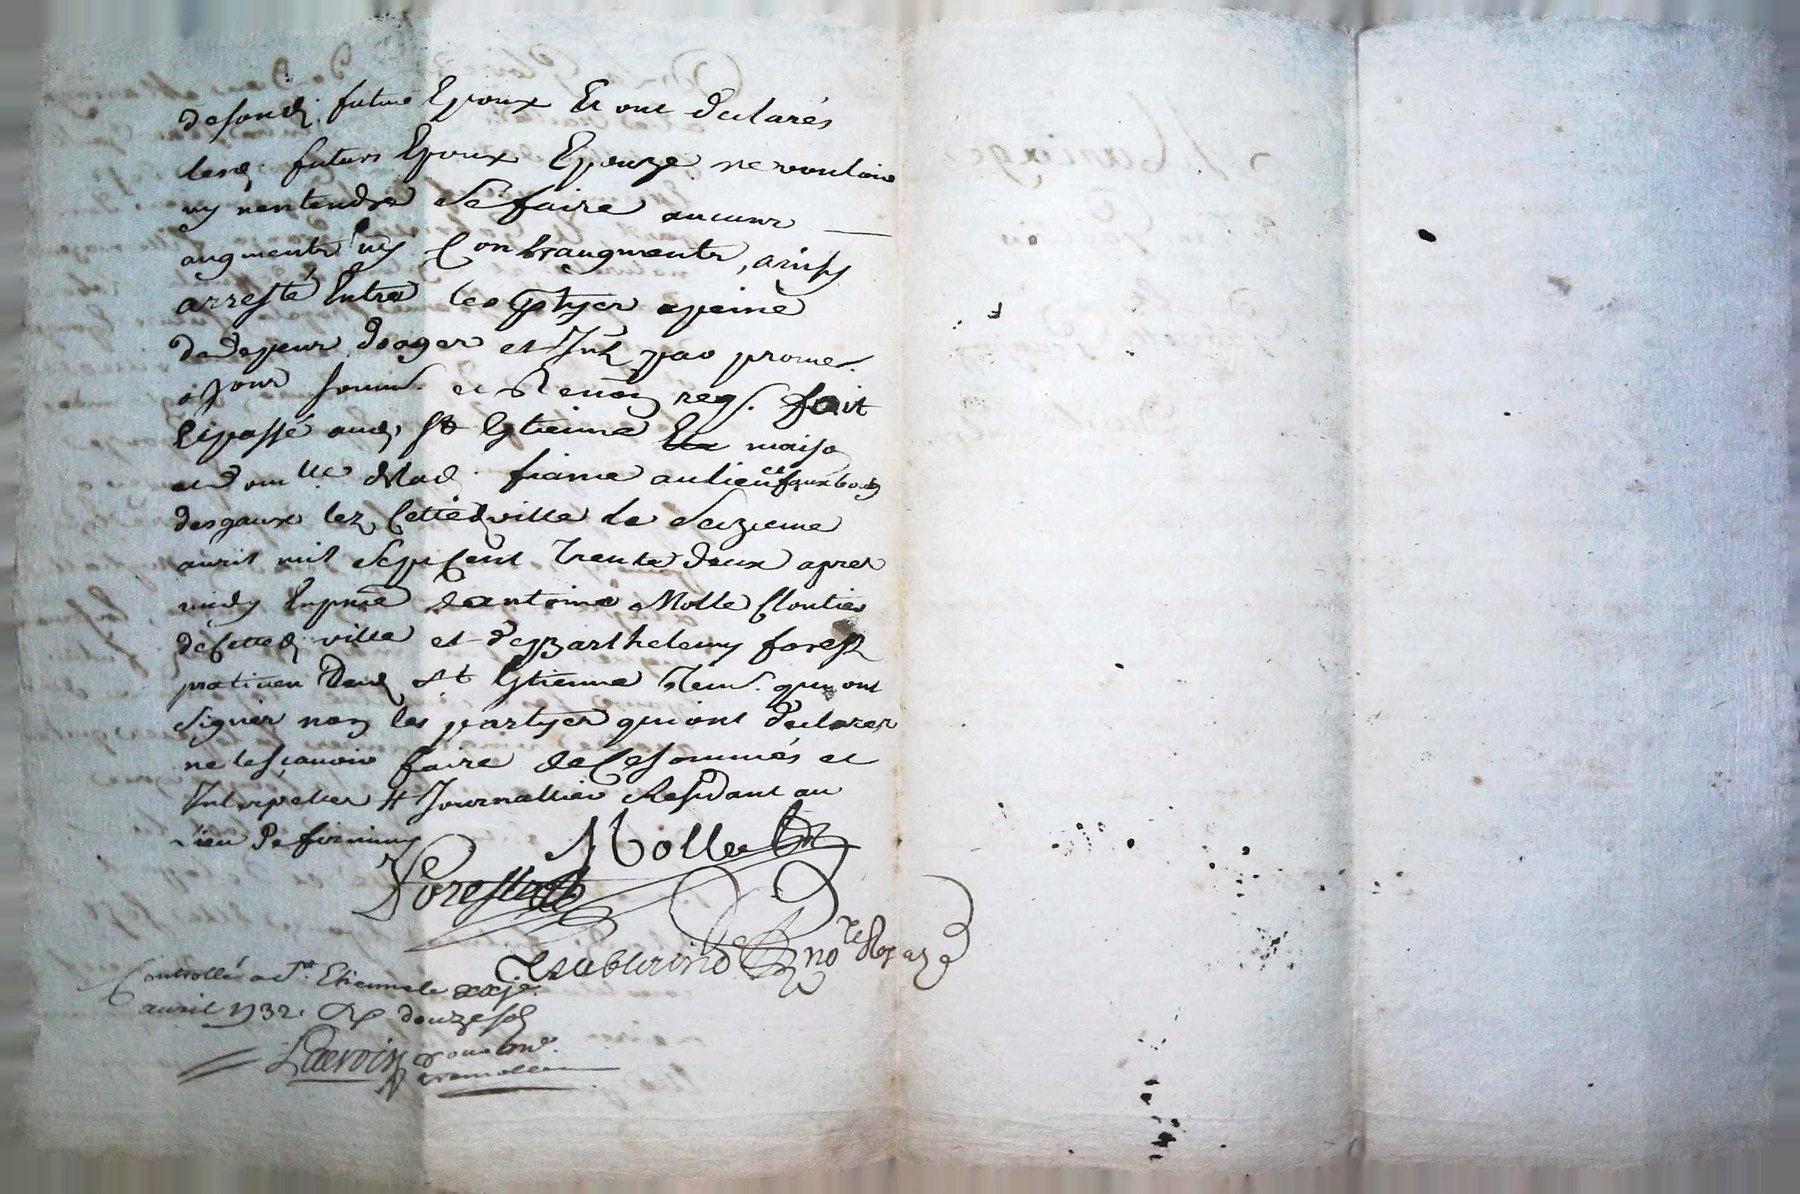 desond. futur Epoux Et ont declarés
lesd. futurs Epoux Epouze ne vouloir
ny nentendre Se faire aucune
augments ny Contraugments, ainsy
arresté Entre les ptyes apeine
de depeur doages et Jnt par promes.
et Renon reqs. fait
Et passé aud. St Estienne En maiso
et domlle delad. fiame au lieu et fauxbourg
desgaux lez Cetted ville le Seizieme
avril mil Sept Cent Trente deux apres
midy En pnce de antoine Molle Cloutier
de Cetted. ville et de Barthelemy forest
praticien Dud St Estienne Tem. qui ont
Signer non les partyes qui ont declarer
ne le sçavoir faire de Ce sommés et
Interpeller # Journallier Residant au
lieu De firminy
Molle
Forest
nore Royal
Controllé a St. Etienne le xxje.
avril 1732. R douze sols